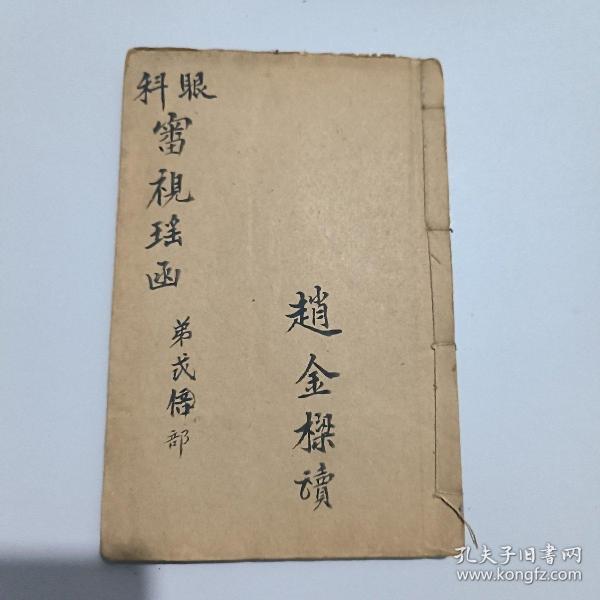 眼科
審視瑶函
弟弍
部
趙金樑讀
孔夫子旧书网
www.kongfz.com